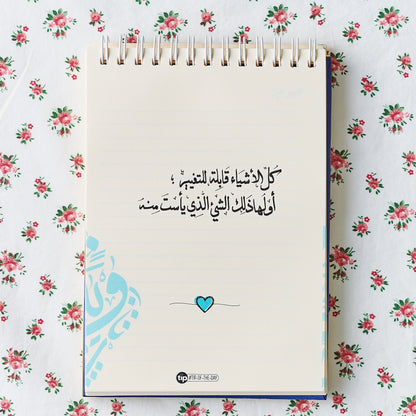 كل الأشياء قابلة للتغيير ؛
أولها ذلك الشيء الذي يأست منه
tip #TIP-OF-THE-DAY